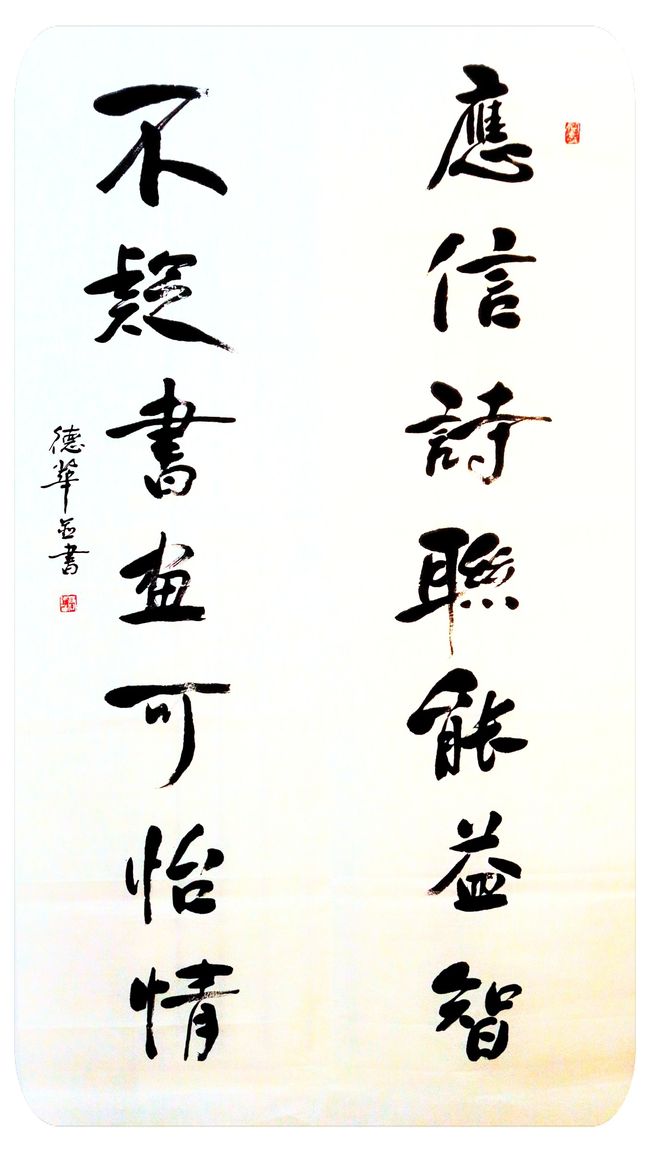 應信詩聯能益智
不疑書畫可怡情
德華並書